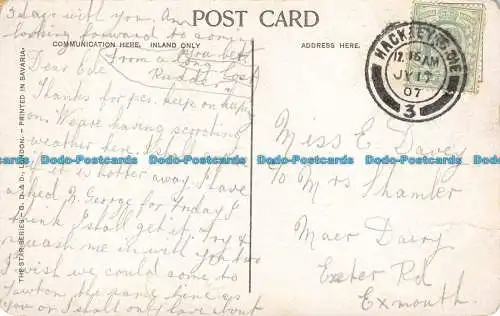 3 days with you. Am
looking forward to
POST CARD
COMMUNICATION HERE, INLAND ONLY
ADDRESS HERE.
HACKNEY
12.15AM
JY 17
07
3
From a
Long Lost
Rudder
Dear
Thanks for p.c. keep on keeping
on. We are having scorching
weather here. I shall
if it is hotter away. I have
asked N. George for Friday I
think I shall get it. Try &
squash me in with you two
I wish we could come to
the same time as
you or I shall only have about
Miss E. Davey
To Mrs Shamler
Maer Dairy
Exeter Rd
Exmouth.
THE STAR SERIES - G. D. & D., LONDON. - PRINTED IN BAVARIA.
Dodo-Postcards Dodo-Postcards Dodo-Postcards Dodo-Postcards Dodo-Postcards